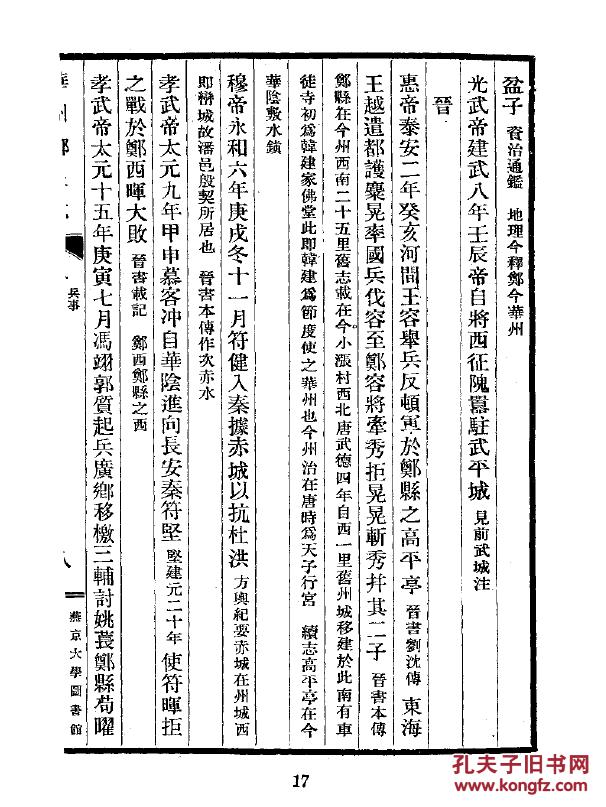 盆子 資治通鑑 地理今釋鄭今華州
光武帝建武八年壬辰帝自將西征隗囂駐武平城 見前武城注
晉
惠帝泰安二年癸亥河間王容舉兵反頓軍於鄭縣之高平亭 晉書劉沈傳 東海
王越遣都護麋晃率國兵伐容至鄭容將牽秀拒晃晃斬秀幷其二子 晉書本傳
鄭縣在今州西南二十五里舊志載在今小漲村西北唐武德四年自西一里舊州城移建於此南有車
徒寺初爲韓建家佛堂此即韓建爲節度使之華州也今州治在唐時爲天子行宮 續志高平亭在今
華陰敷水鎮
穆帝永和六年庚戌冬十一月符健入秦據赤城以抗杜洪 方輿紀要赤城在州城西
即巒城故潘邑殷契所居也 晉書本傳作次赤水
孝武帝太元九年甲申慕客冲自華陰進向長安秦符堅 堅建元二十年 使符暉拒
之戰於鄭西暉大敗 晉書載記 鄭西鄭縣之西
孝武帝太元十五年庚寅七月馮翊郭質起兵廣鄉移檄三輔討姚萇鄭縣苟曜
兵事
八
燕京大學圖書館
17
孔夫子旧书网
www.kongfz.com